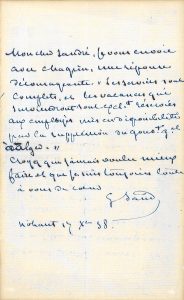 Mon cher André, je vous envoie
avec chagrin, une réponse
décourageante. « Les cadres sont
complets, et les vacances qui
surviendront sont réservées
aux employés mis en disponibilité
par la suppression du gouvt g al
Algér. »
Croyez que j'aurais voulu mieux
faire et que je suis toujours toute
à vous de cœur
G Sand
Nohant 17 Xbre 58.